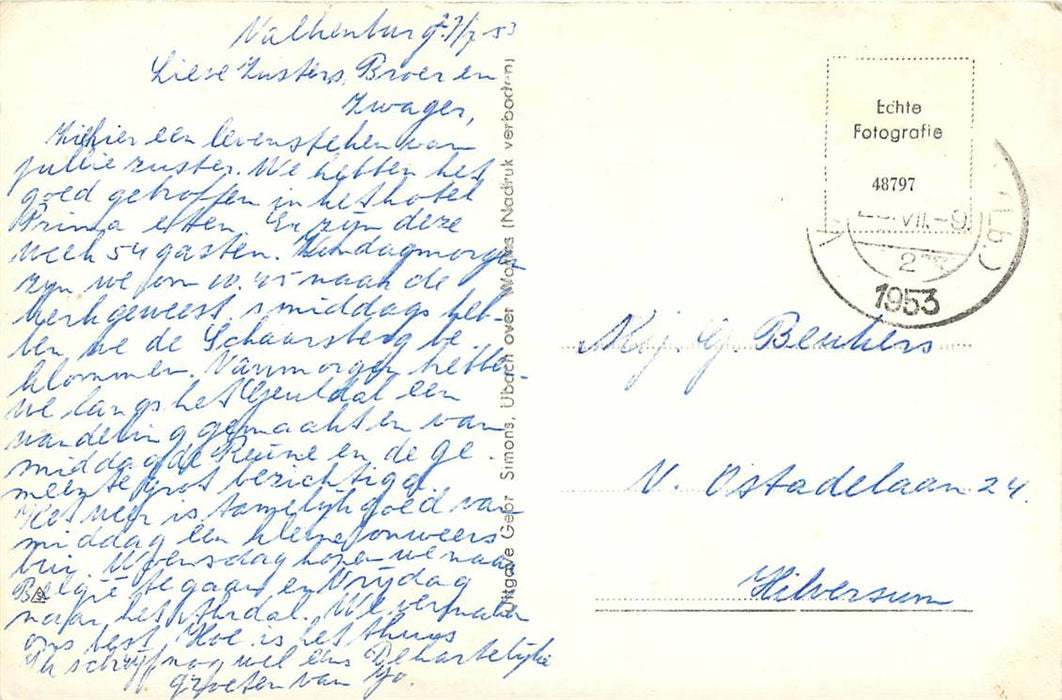 Valkenburg 27/7 53
Lieve Zusters, Broer en
Zwager,
Hiehier een levensteken van
jullie zuster. We hebben het
goed getroffen in het hotel
Prima eten. Er zijn deze
week 54 gasten. Zondagmorgen
zijn we om 10.45 naar de
kerk geweest, s middags heb-
ben we de Schaarsberg be
klommen. Vanmorgen hebben
we langs het Geuldal een
wandeling gemaakt en van
middag de Ruïne en de ge-
meentegrot bezichtigd.
Het weer is tamelijk goed van
middag een kleine onweers
bui. Woensdag hopen we naar
België te gaan en Vrijdag
naar het Ahrdal. We vermaken
ons best. Hoe is het thuis
Ik schrijf nog wel eens De hartelijke
groeten van Jo.
Uitgave Gebr Simons, Ubach over Worms (Nadruk verboden)
Echte
Fotografie
48797
VII.-9
1953
Mej. G. Beukers
V. Ostadelaan 24.
Hilversum